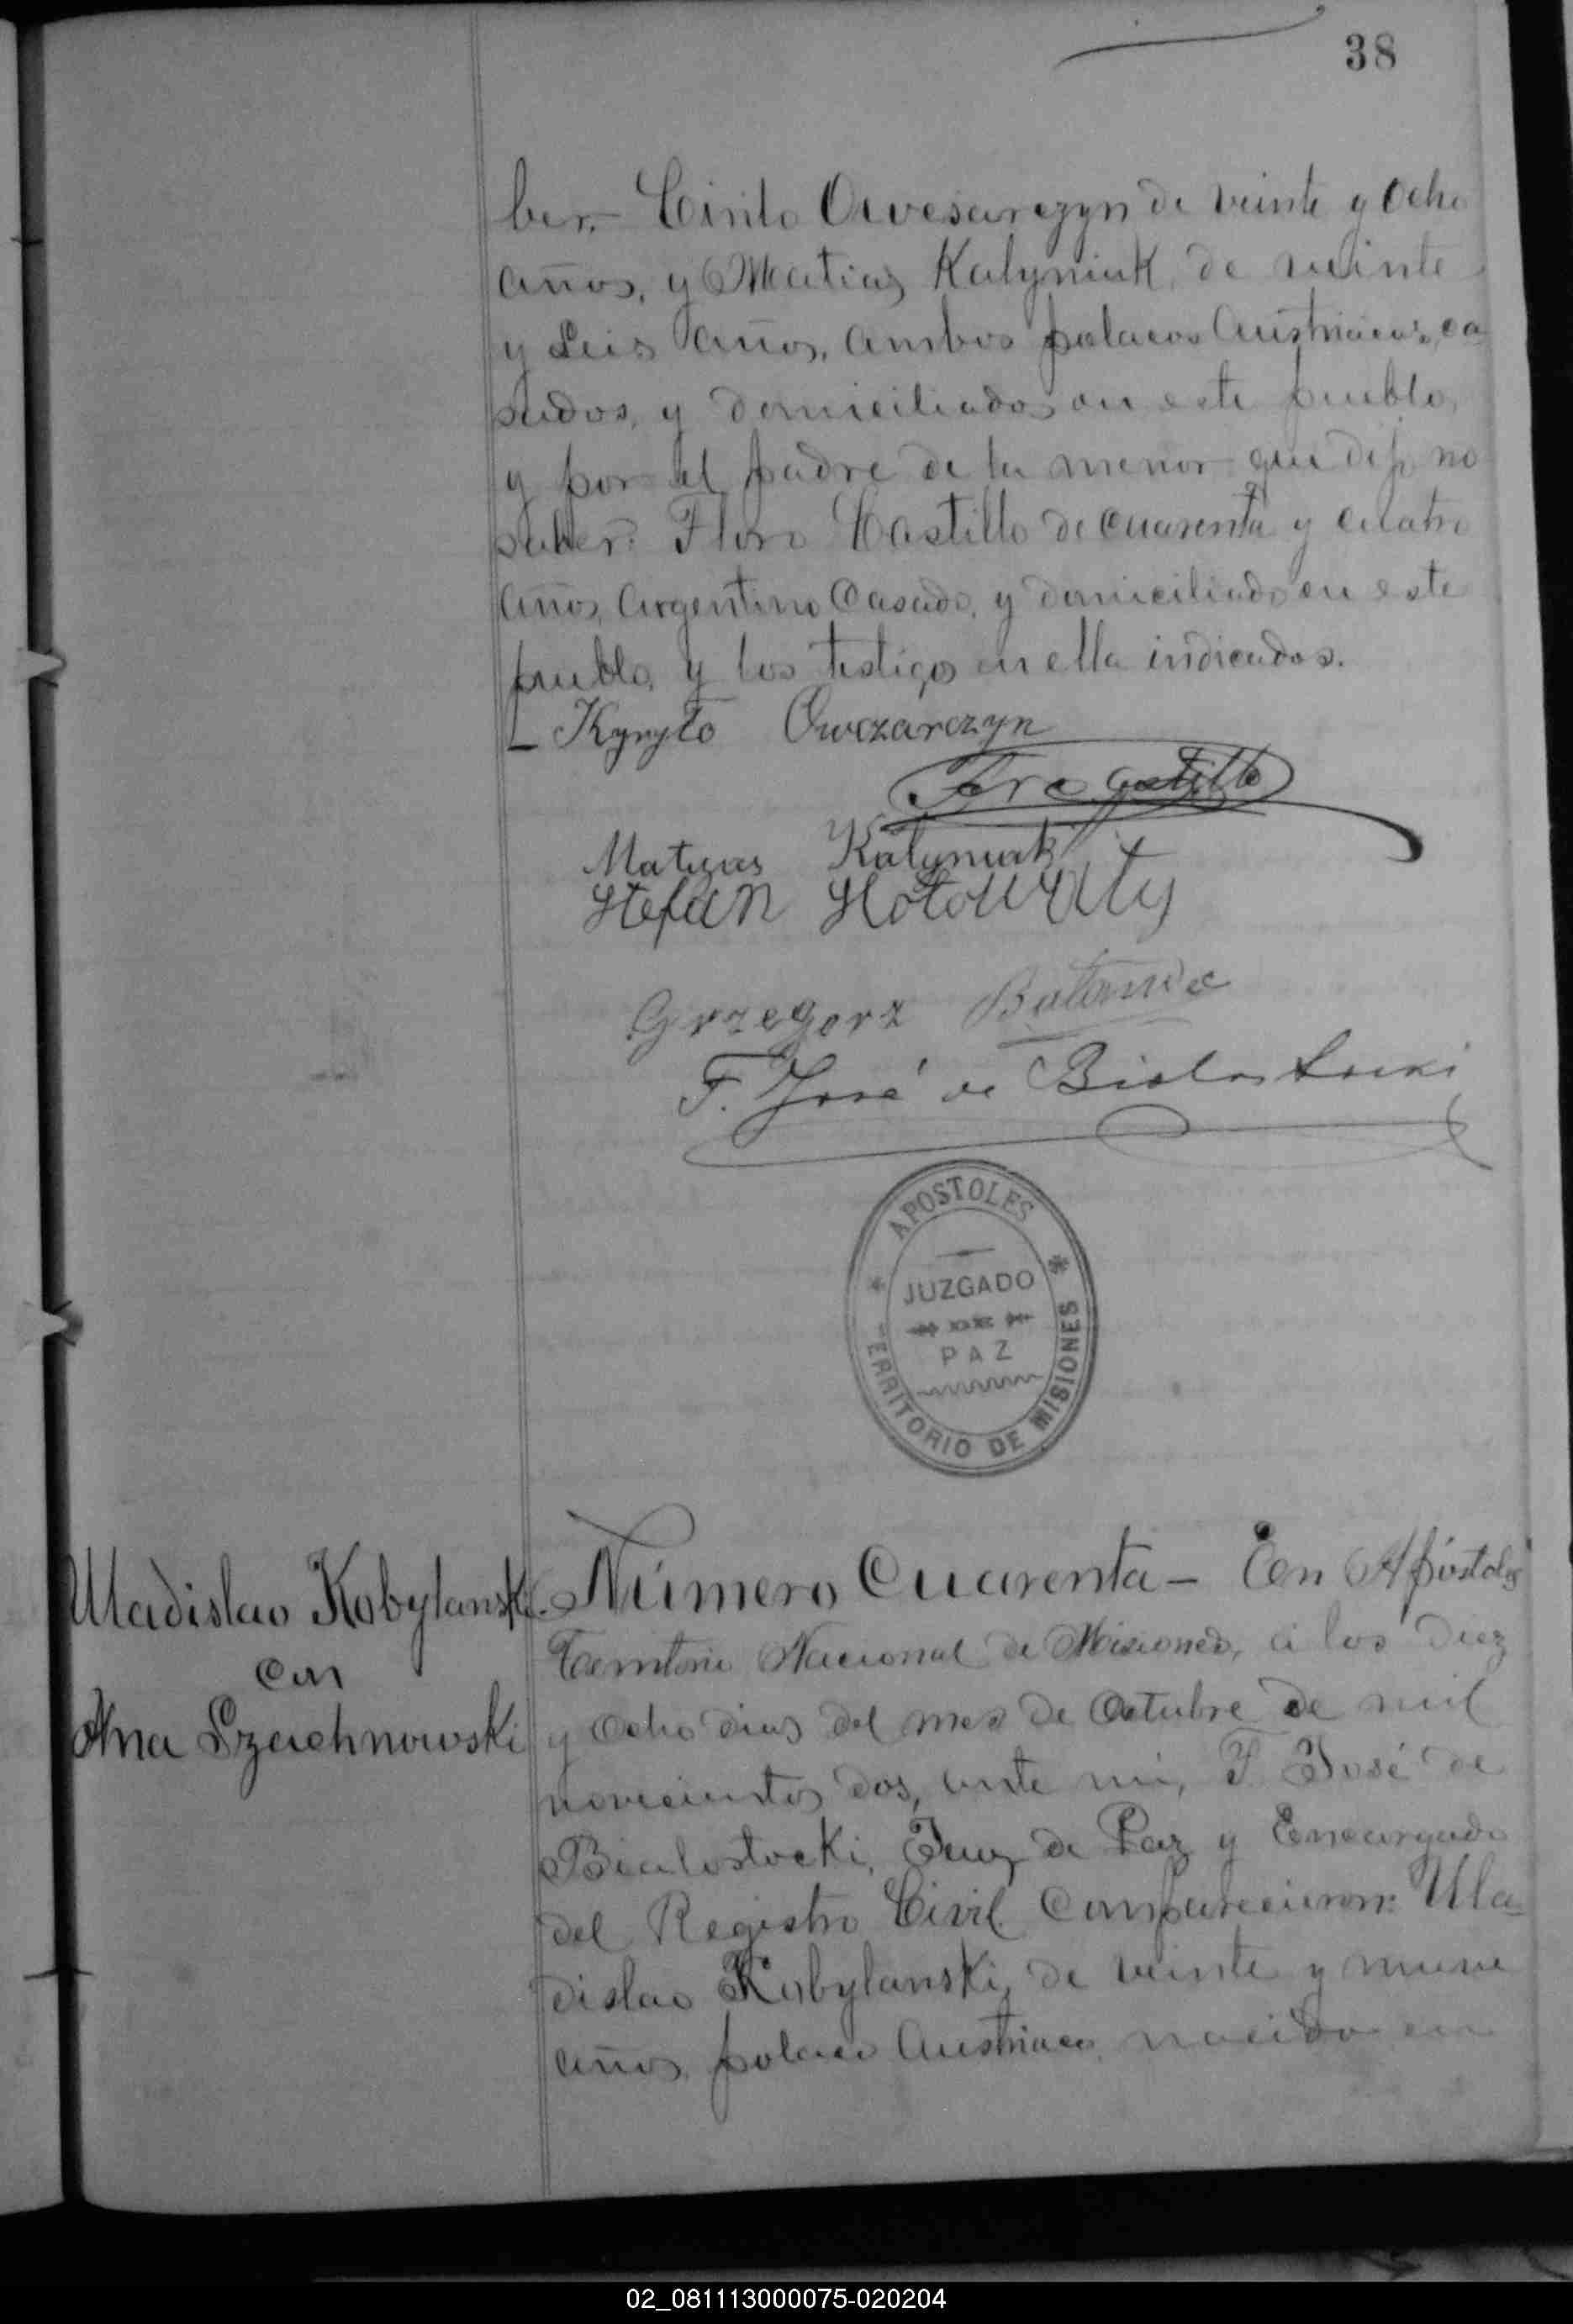 38
ber.- Cirilo Owesarezyn de veinte y ocho
años, y Matias Kalyniuk, de veinte
y seis años, ambos polacos austriacos, ca
sados, y domiciliados en este pueblo,
y por el padre de la menor que dijo no
saber: Floro Castillo de cuarenta y cuatro
años, argentino casado, y domiciliado en este
pueblo, y los testigos en ella indicados.
Kyryło Owczarczyn
Floro Castillo
Matyas Kalyniuk
Stefan Hołowaty
Grzegorz
F. José de Bialostocki
APOSTOLES
JUZGADO
PAZ
TERRITORIO DE MISIONES
Uladislao Kobylanski
con
Ana Szachnowski
Número Cuarenta - En Apóstoles
Territorio Nacional de Misiones, á los diez
y ocho dias del mes de Octubre de mil
novecientos dos, ante mi, F. José de
Bialostocki, Juez de Paz y Encargado
del Registro Civil comparecieron: Ula-
dislao Kobylanski, de veinte y nueve
años, polaco austriaco, nacido en
02_081113000075-020204